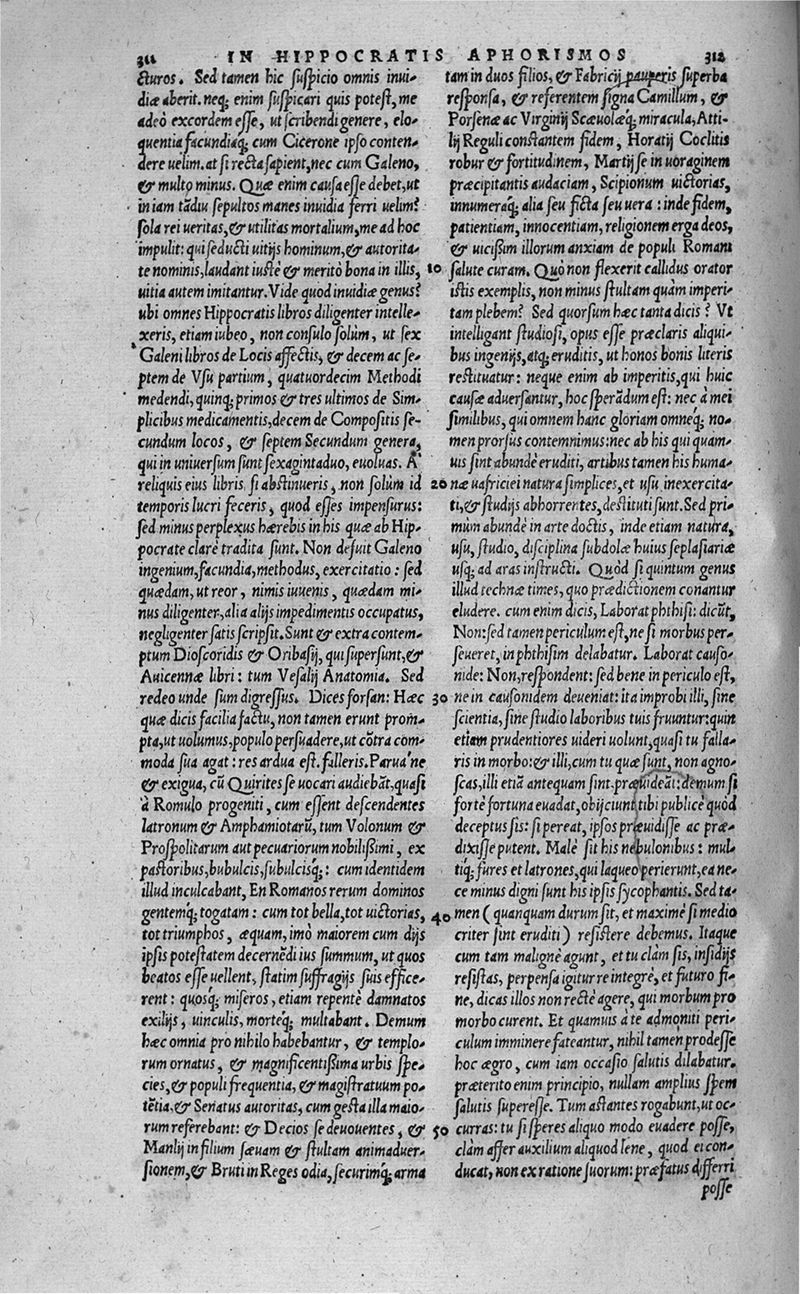 311 IN HIPPOCRATIS APHORISMOS 312
cturos. Sed tamen hic suspicio omnis inui-
diæ aberit. neq; enim suspicari quis potest, me
adeò excordem esse, ut scribendi genere, elo-
quentia facundiaq; cum Cicerone ipso conten-
dere uelim. at si recta sapiant, nec cum Galeno,
& multo minus. Quæ enim causa esse debet, ut
in iam tãdiu sepultos manes inuidia ferri uelim?
sola rei ueritas, & utilitas mortalium, me ad hoc
impulit: qui seducti uitijs hominum, & autorita-
te nominis, laudant iustè & meritò bona in illis,
uitia autem imitantur. Vide quod inuidiæ genus?
ubi omnes Hippocratis libros diligenter intelle-
xeris, etiam iubeo, non consulo solùm, ut sex
Galeni libros de Locis affectis, & decem ac se-
ptem de Vsu partium, quatuordecim Methodi
medendi, quinq; primos & tres ultimos de Sim-
plicibus medicamentis, decem de Compositis se-
cundum locos, & septem Secundum genera,
qui in uniuersum sunt sexagintaduo, euoluas. A'
reliquis eius libris si abstinueris, non solùm id
temporis lucri feceris, quod esses impensurus:
sed minus perplexus hærebis in his quæ ab Hip-
pocrate clarè tradita sunt. Non defuit Galeno
ingenium, facundia, methodus, exercitatio: sed
quædam, ut reor, nimis iuuenis, quædam mi-
nus diligenter, alia alijs impedimentis occupatus,
negligenter satis scripsit. Sunt & extra contem-
ptum Dioscoridis & Oribasij, qui supersunt, &
Auicennæ libri: tum Vesalij Anatomia. Sed
redeo unde sum digressus. Dices forsan: Hæc
quæ dicis facilia factu, non tamen erunt prom-
pta, ut uolumus, populo persuadere, ut cõtra com-
moda sua agat: res ardua est. falleris. Parua'ne
& exigua, cũ Quirites se uocari audiebãt, quasi
à Romulo progeniti, cum essent descendentes
latronum & Amphamiotarũ, tum Volonum &
Prospolitarum aut pecuariorum nobilißimi, ex
pastoribus, bubulcis, subulcisq;: cum identidem
illud inculcabant, En Romanos rerum dominos
gentemq; togatam: cum tot bella, tot uictorias,
tot triumphos, æquam, imò maiorem cum dijs
ipsis potestatem decernẽdi ius summum, ut quos
beatos esse uellent, statim suffragijs suis effice-
rent: quosq; miseros, etiam repentè damnatos
exilijs, uinculis, morteq; multabant. Demum
hæc omnia pro nihilo habebantur, & templo-
rum ornatus, & magnificentißima urbis spe-
cies, & populi frequentia, & magistratuum po-
tẽtia, & Senatus autoritas, cum gesta illa maio-
rum referebant: & Decios se deuouentes, &
Manlij in filium sæuam & stultam animaduer-
sionem, & Bruti in Reges odia, securimq; arma
tam in duos filios, & Fabricij pauperis superba
responsa, & referentem signa Camillum, &
Porsenæ ac Virginij Scæuolæq; miracula, Atti-
lij Reguli constantem fidem, Horatij Coclitis
robur & fortitudinem, Martij se in uoraginem
præcipitantis audaciam, Scipionum uictorias,
innumeraq; alia seu ficta seu uera: inde fidem,
patientiam, innocentiam, religionem erga deos,
& uicißim illorum anxiam de populi Romani
10 salute curam. Quò non flexerit callidus orator
istis exemplis, non minus stultam quàm imperi-
tam plebem? Sed quorsum hæc tanta dicis? Vt
intelligant studiosi, opus esse præclaris aliqui-
bus ingenijs, atq; eruditis, ut honos bonis literis
restituatur: neque enim ab imperitis, qui huic
causæ aduersantur, hoc sperãdum est: nec à mei
similibus, qui omnem hanc gloriam omneq; no-
men prorsus contemnimus: nec ab his qui quam-
uis sint abundè eruditi, artibus tamen his huma-
20 næ uafriciei natura simplices, et usu inexercita-
ti, & studijs abhorrentes, destituti sunt. Sed pri-
mùm abundè in arte doctis, inde etiam natura,
usu, studio, disciplina subdolæ huius seplasiariæ
usq; ad aras instructi. Quòd si quintum genus
illud technæ times, quo prædictionem conantur
eludere. cum enim dicis, Laborat phthisi: dicũt,
Non: sed tamen periculum est, ne si morbus per-
seueret, in phthisim delabatur. Laborat causo-
nide: Non, respondent: sed bene in periculo est,
30 ne in causonidem deueniat: ita improbi illi, sine
scientia, sine studio laboribus tuis fruuntur: quin
etiam prudentiores uideri uolunt, quasi tu falla-
ris in morbo: & illi, cum tu quæ sunt, non agno-
scas, illi etiã antequam sint, præuideãt: demum si
fortè fortuna euadat, obijciunt tibi publicè quòd
deceptus sis: si pereat, ipsos præuidisse ac præ-
dixisse putent. Malè sit his nebulonibus: mul-
tiq; fures et latrones, qui laqueo perierunt, ea ne-
ce minus digni sunt his ipsis sycophantis. Sed ta-
40 men (quanquam durum sit, et maximè si medio
criter sint eruditi) resistere debemus. Itaque
cum tam malignè agunt, et tu clàm sis, insidijs
resistas, perpensa igitur re integrè, et futuro fi-
ne, dicas illos non rectè agere, qui morbum pro
morbo curent. Et quamuis à te admoniti peri-
culum imminere fateantur, nihil tamen prodesse
hoc ægro, cum iam occasio salutis dilabatur.
præterito enim principio, nullam amplius spem
salutis superesse. Tum astantes rogabunt, ut oc-
50 curras: tu si speres aliquo modo euadere posse,
clàm affer auxilium aliquod lene, quod ei con-
ducat, non ex ratione suorum: præfatus differri
posse